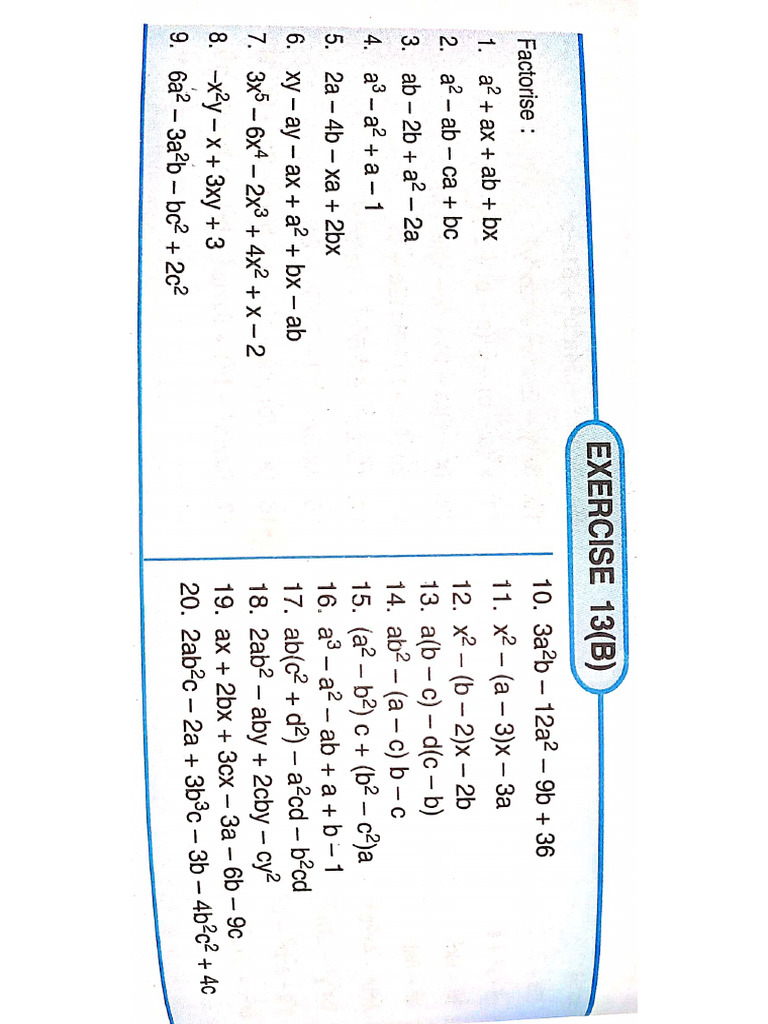 EXERCISE 13(B)
Factorise :
1. a² + ax + ab + bx
2. a² – ab – ca + bc
3. ab – 2b + a² – 2a
4. a³ – a² + a – 1
5. 2a – 4b – xa + 2bx
6. xy – ay – ax + a² + bx – ab
7. 3x⁵ – 6x⁴ – 2x³ + 4x² + x – 2
8. –x²y – x + 3xy + 3
9. 6a² – 3a²b – bc² + 2c²
10. 3a²b – 12a² – 9b + 36
11. x² – (a – 3)x – 3a
12. x² – (b – 2)x – 2b
13. a(b – c) – d(c – b)
14. ab² – (a – c) b – c
15. (a² – b²) c + (b² – c²)a
16. a³ – a² – ab + a + b – 1
17. ab(c² + d²) – a²cd – b²cd
18. 2ab² – aby + 2cby – cy²
19. ax + 2bx + 3cx – 3a – 6b – 9c
20. 2ab²c – 2a + 3b³c – 3b – 4b²c² + 4c